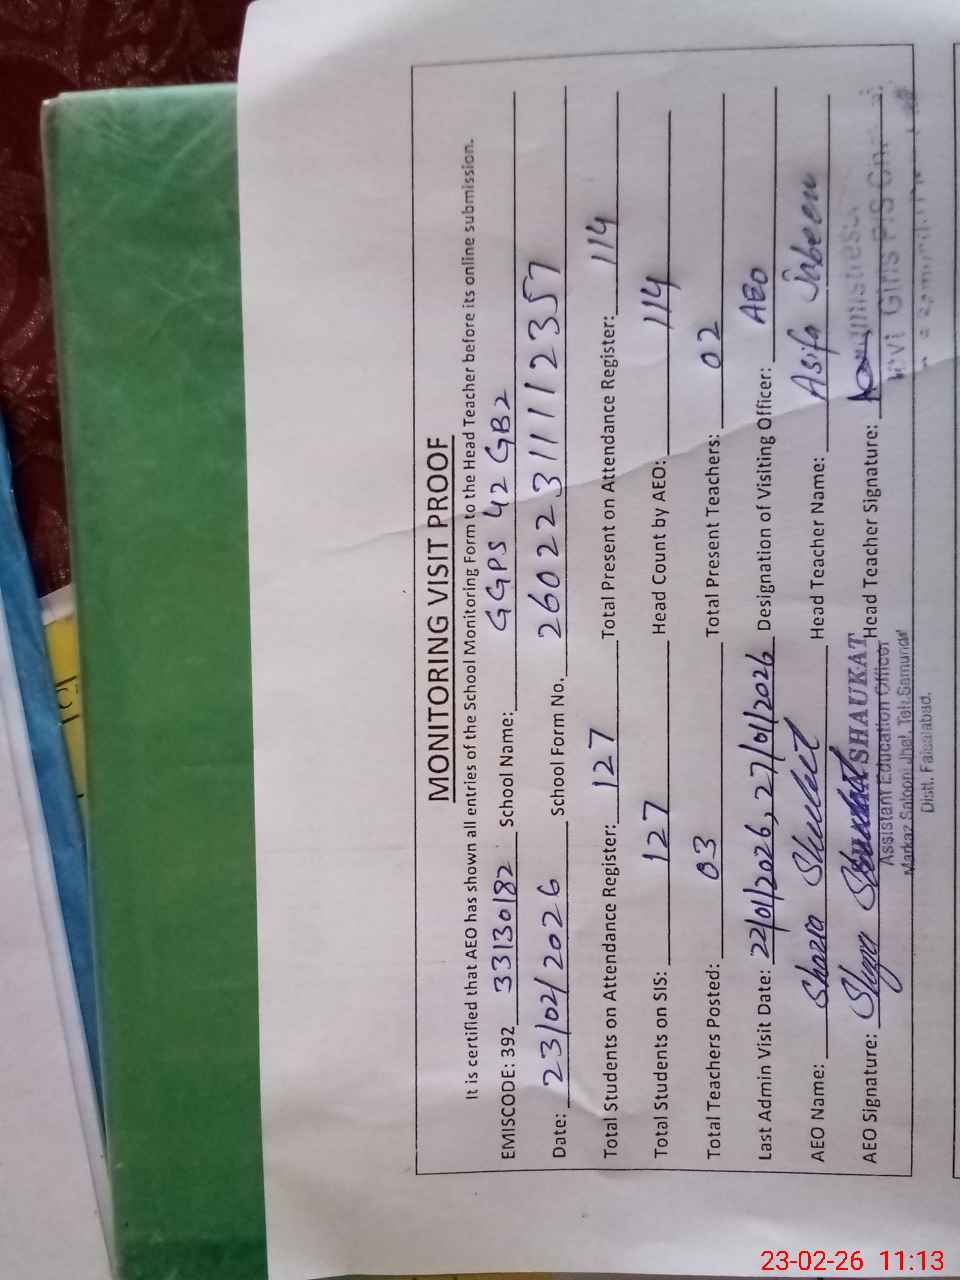 MONITORING VISIT PROOF
It is certified that AEO has shown all entries of the School Monitoring Form to the Head Teacher before its online submission.
EMISCODE: 392 33130182 School Name: GGPS 42 GB2
Date: 23/02/2026 School Form No. 260223111112357
Total Students on Attendance Register: 127 Total Present on Attendance Register: 114
Total Students on SIS: 127 Head Count by AEO: 114
Total Teachers Posted: 03 Total Present Teachers: 02
Last Admin Visit Date: 22/01/2026, 27/01/2026 Designation of Visiting Officer: AEO
AEO Name: Shazia Shaukat Head Teacher Name: Asifa Jabeen
AEO Signature: Head Teacher Signature:
SHAUKAT
Assistant Education Officer
Markaz Salooni Jhal, Teh: Samundri
Distt. Faisalabad.
Girls P/S
23-02-26 11:13